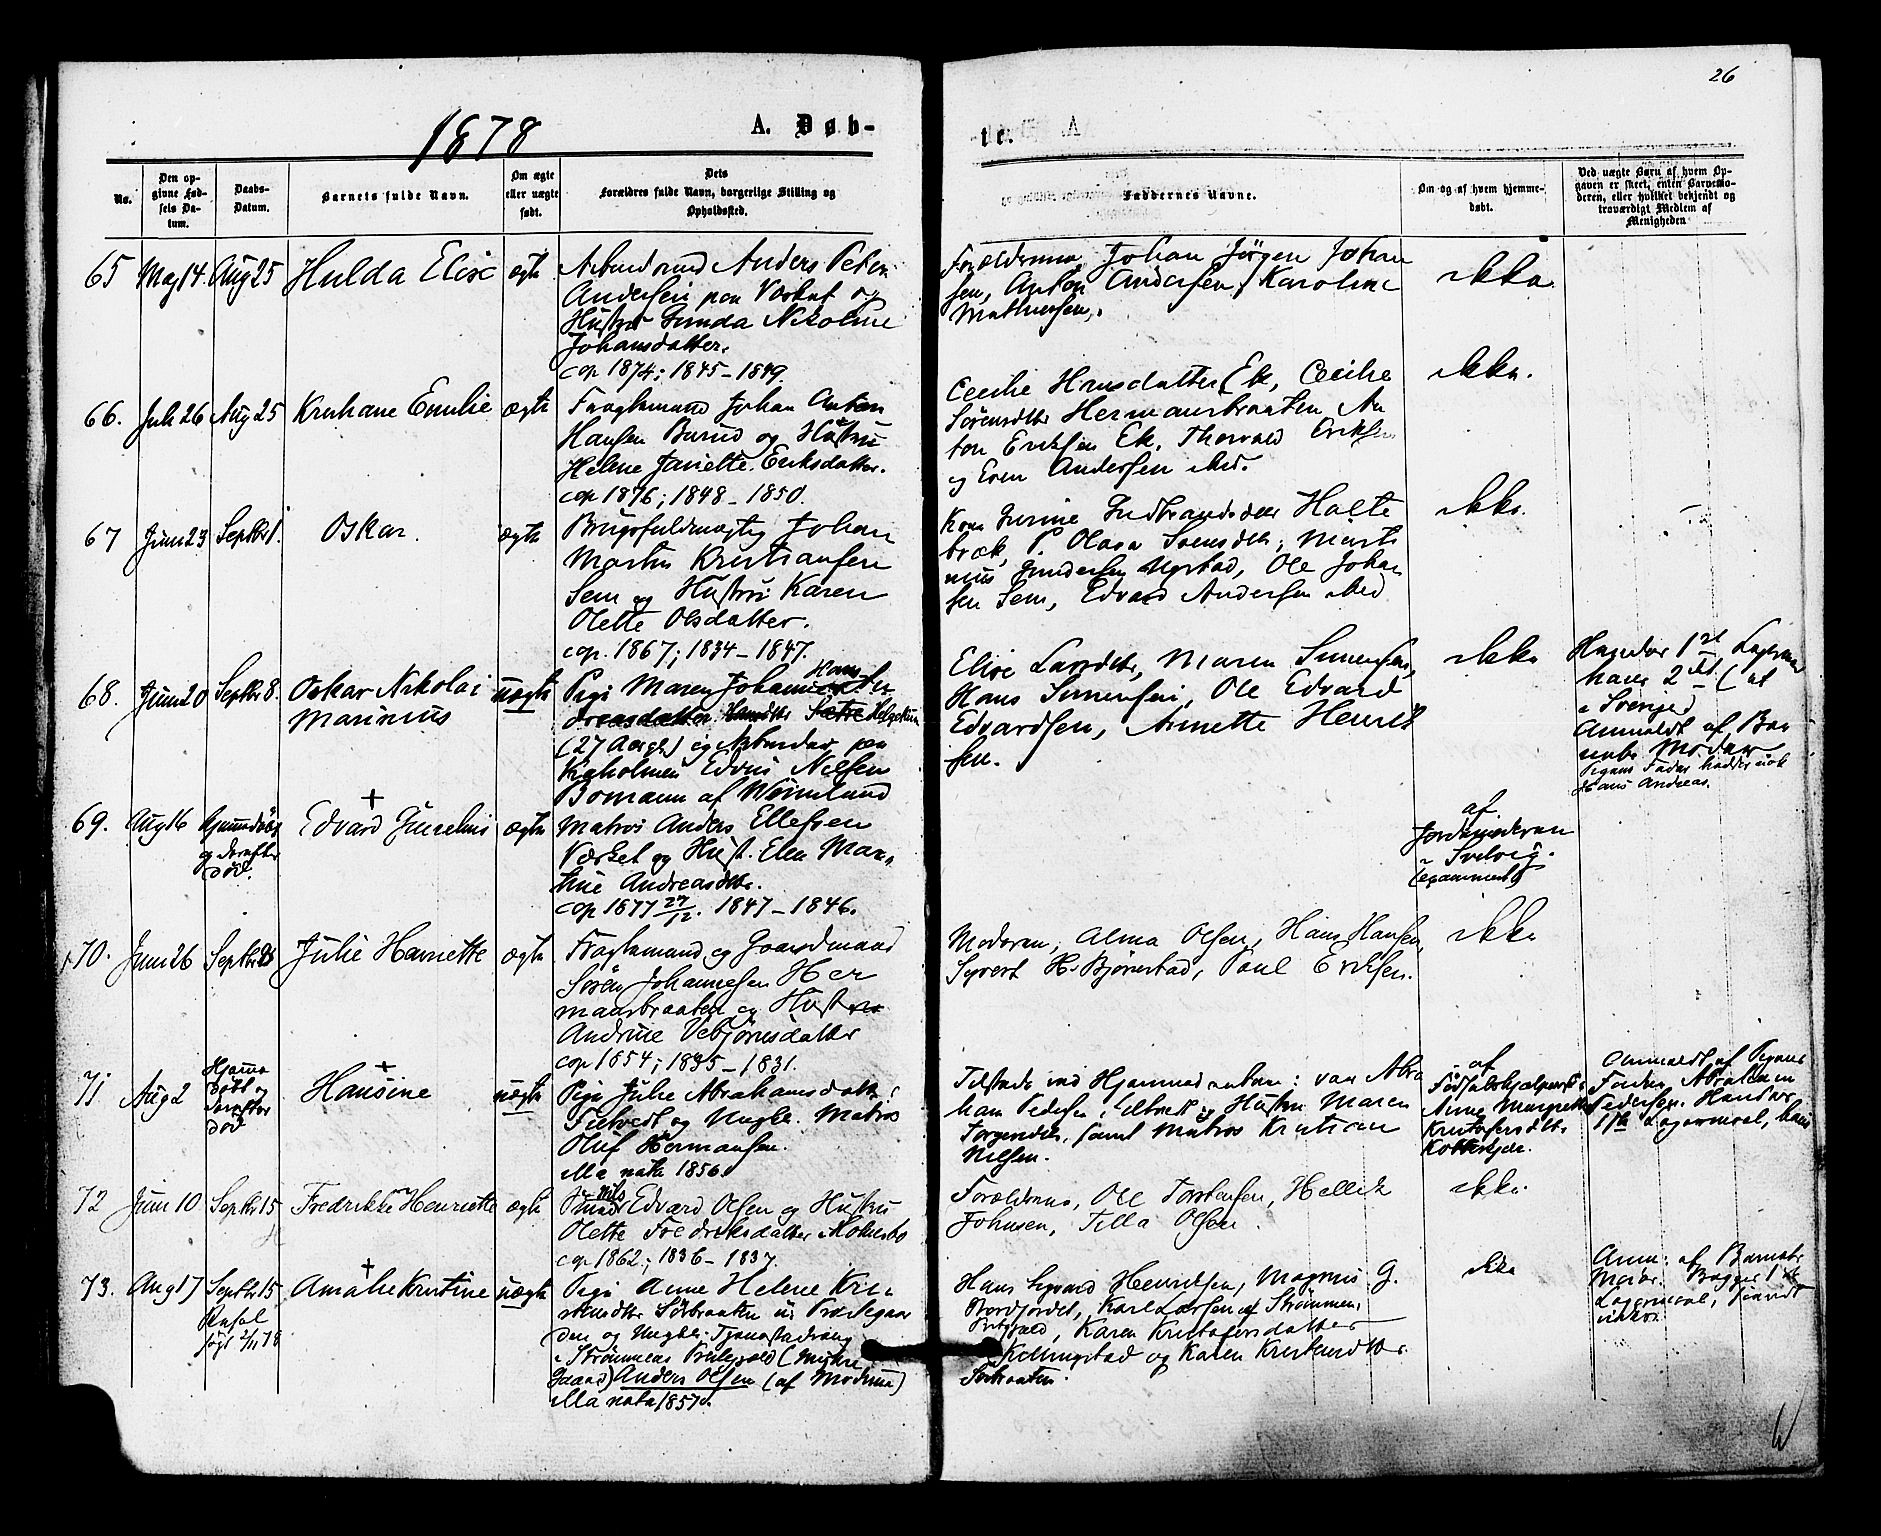 26
1878
A. Døb-
te.
No.
Den op-
givne Fød-
sels Da-
tum.
Daabs-
Datum.
Barnets fulde Navn.
Om ægte
eller uægte
født.
Dets
Forældres fulde Navn, borgerlige Stilling og
Opholdssted.
Faddernes Navne.
Om og af hvem hjemme-
døbt.
Ved uægte Børn af hvem Op-
gaven er skeet, enten Barnemo-
deren, eller hvilket bekjendt og
troværdigt Medlem af
Menigheden
65 Maj 14. Aug 25 Hulda Elise ægte Anders Peter
Andersen paa Værket og
Hustru Gunda Nikoline
Johansdatter.
cop 1874; 1845-1849.
Forældrene, Johan Jørgen Johan
sen, Anton Andersen, Karoline
Mathiesen.
ikke.
66. Juli 26 Aug 25 Kristiane Emilie ægte Fragtemand Johan Anton
Hansen Berud og Hustru
Helene Jariette Eriksdatter.
cop 1876; 1848-1850.
Cecilie Hansdatter Ek, Cecilie
Sørensdtr Hermansbraaten An
ton Eriksen Ek, Thorvald Eriksen
og Even Andersen ibid.
ikke.
67 Juni 23 Septbr 1. Oskar. ægte Brugsfuldmægtig Johan
Martin Kristiansen
Sem og Hustru Karen
Olette Olsdatter.
cop. 1867; 1834-1847.
Kone Gurine Gudbrandsdtr Holte
bræk, P. Olava Svensdtr, Marti
nius Gundersen Rystad, Ole Johan
sen Sem, Edvard Andersen ibid
ikke.
68. Juni 20 Septbr 8. Oskar Nikolai
Marinius
uægte Pige Maren Johanne
Hansdtr Sætre Helgerum
(27 Aar gl.) og Arbeider paa
Kigholmen Edvin Nilsen
Bomann af Wermland
Elise Larsdtr, Maren Simensen,
Hans Simensen, Ole Edvard
Edvardsen, Annette Henrik
sen.
ikke
Hendes 1ste Leierm
Hans 2det (
i Sverige)
Anmeldt af Bar
nets Moder
Pigens Fader hedder nok
Hans Andreas.
69. Aug 16 Hjemmedøbt
og derefter
død.
Edvard Gurelius ægte Matros Anders Ellefsen
Værket og Hust. Elen Mar-
thie Andreasdtr.
cop 1877 27/12. 1847-1846.
af
Jordemoderen
i Svelvig.
70. Juni 26 Septbr 8 Julie Harriette ægte Fragtemand og Gaardmand
Søren Johannesen Her
mansbraaten og Hustru
Andrine Vebjørnsdatter
cop 1854; 1835-1831.
Moderen, Alma Olsen, Hans Hansen,
Syvert H. Bjørnstad, Paul Eriksen.
ikke
71 Aug 2 Hjemme
døbt og
derefter
død
Hansine uægte Pige Julie Abrahamsdatter
Tilvedt og Ungkl. Matros
Oluf Hermansen.
Illa nata 1856.
Tilstede ved Hjemmedaaben: var Abra
ham Pedersen Tilvedt og Hustru Maren
Jørgensdtr, samt Matros Kristian
Nilsen.
af
Fødselshjælperske
Anne Margrethe
Kristofersdtr.
Anmeldt af Pigens
Fader Abraham
Pedersen. Hendes
1ste Leiermaal, hans
72 Juni 10 Septbr 15 Fredrikke Henriette ægte Nils Edvard Olsen og Hustru
Olette Fredriksdatter
cop 1862; 1836-1837.
Forældrene, Ole Torstensen, Hellik
Johnsen, Tilla Olsen.
ikke.
73. Aug 17 Septbr 15 Amalie Kristine uægte Pige Anne Helene Kri-
stensdtr Sørbraaten i Prestegaar
den og Ungkl. Tjenestedreng
i Strømmens Prestegjeld
Anders Olsen (af Moderen)
Illa nata 1857.
Hans Sigvard Henriksen, Magnus G.
Karl Larsen af Strømmens
Prstgjeld, Karen Kristofersdatter
Killingstad og Karen Kristensdtr
Sørbraaten.
ikke
Anm: af Barnets
Moder. Begges 1ste
Leiermaal,